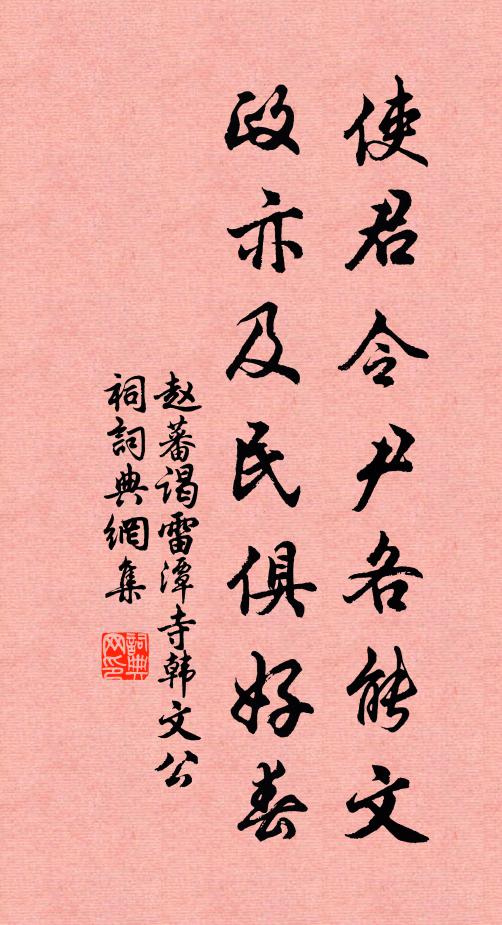 使君令尹各能文
政亦及民俱好春
赵蕃谒雷潭寺韩文公
祠詞典網集
詞典网印